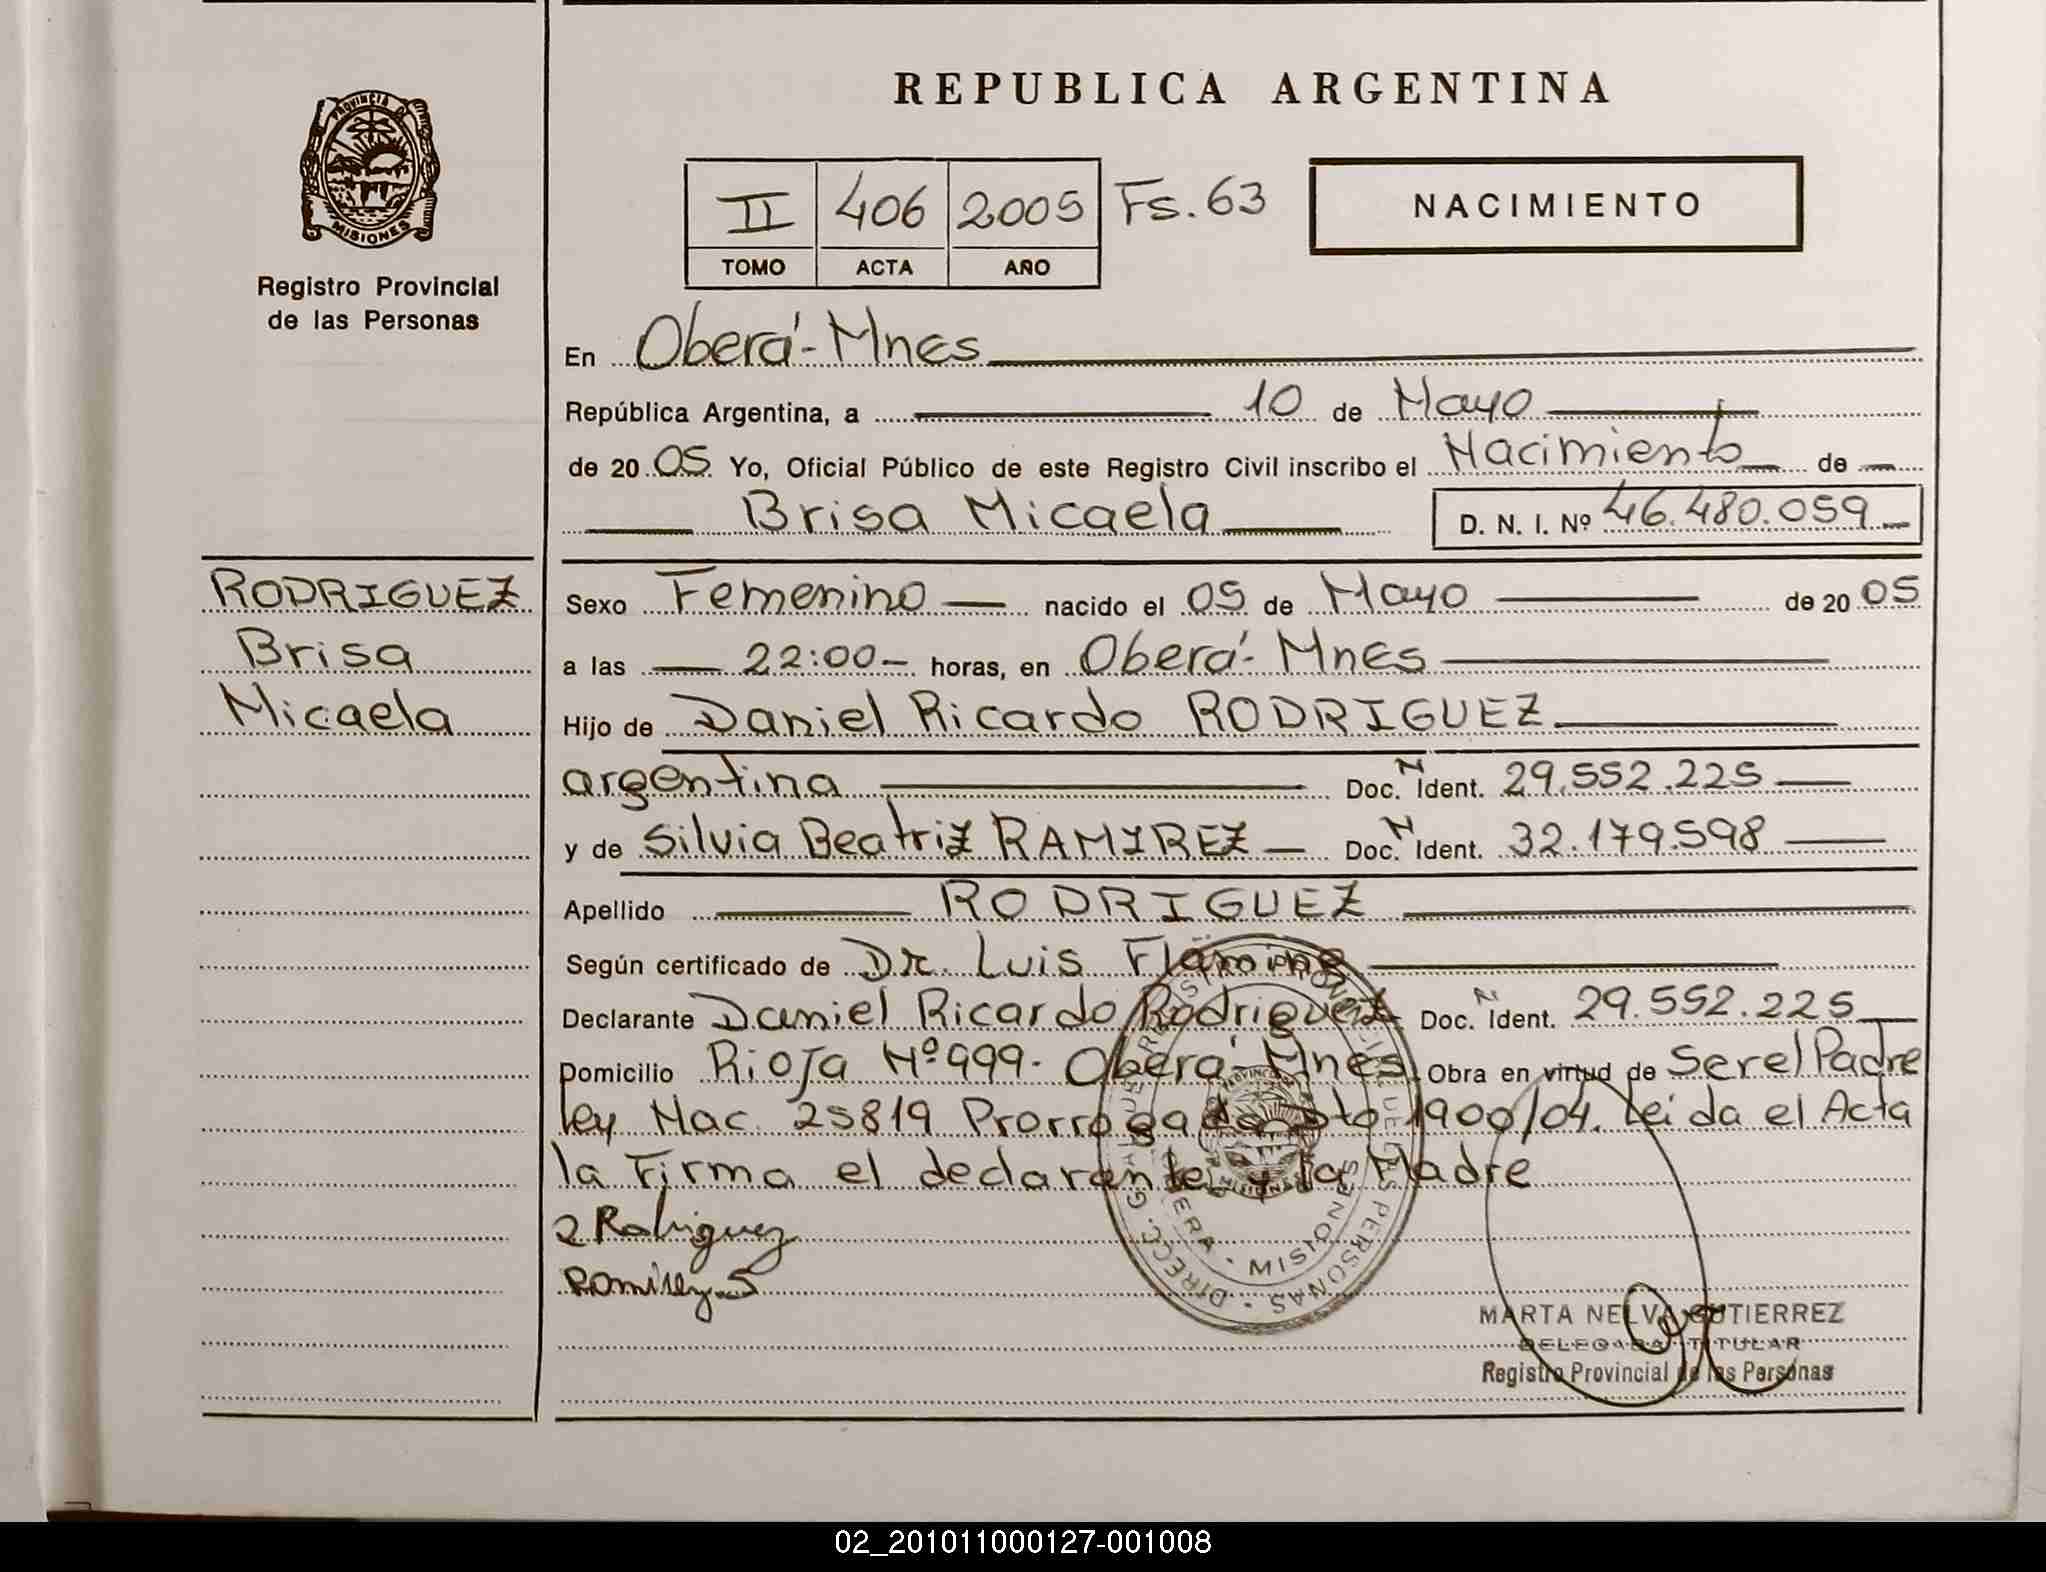 PROVINCIA DE
MISIONES
Registro Provincial
de las Personas
RODRIGUEZ
Brisa
Micaela
REPUBLICA ARGENTINA
II 406 2005 Fs. 63
TOMO ACTA AÑO
NACIMIENTO
En Oberá-Mnes
República Argentina, a 10 de Mayo
de 2005 Yo, Oficial Público de este Registro Civil inscribo el Nacimiento de
Brisa Micaela D. N. I. Nº 46.480.059
Sexo Femenino nacido el 05 de Mayo de 2005
a las 22:00 horas, en Oberá-Mnes
Hijo de Daniel Ricardo RODRIGUEZ
argentina Doc. N Ident. 29.552.225
y de Silvia Beatriz RAMIREZ Doc. N Ident. 32.179.598
Apellido RODRIGUEZ
Según certificado de Dr. Luis
Declarante Daniel Ricardo Rodriguez Doc. N Ident. 29.552.225
Domicilio Rioja Nº 999- Oberá-Mnes Obra en virtud de Ser el Padre
ley Nac. 25819 Prorroga Dto 1900/04. Leida el Acta
la Firma el declarante y la Madre
Rodriguez
MARTA NELVA GUTIERREZ
DELEGADA TITULAR
Registro Provincial de las Personas
02_201011000127-001008